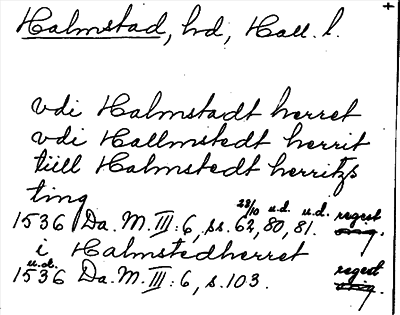 Halmstad, hd, Hall. l.
vdi Halmstadt herret
vdi Hallmstedt herrit
tiill Halmstedt herritzs
ting
28/10 u.d. u.d. regist
1536 Da. M. III: 6, ss. 62, 80, 81. orig.
i Halmstedherret
u.d. regest
1536 Da. M. III: 6, s. 103. orig.